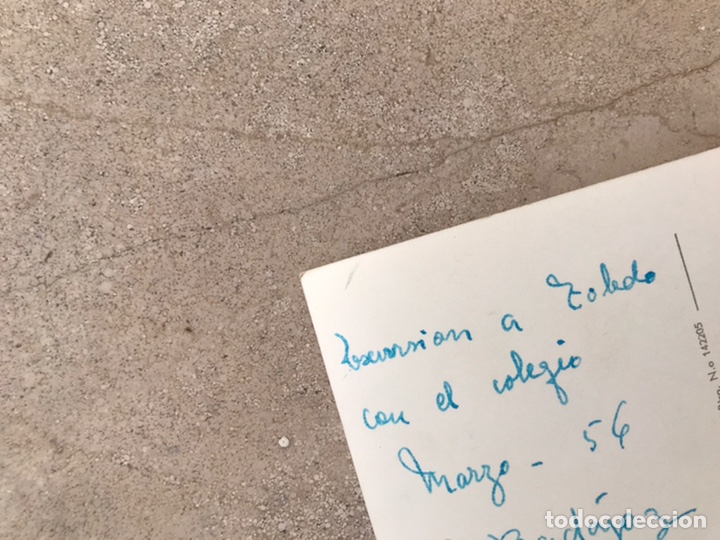 Excursion a Toledo
con el colegio
Marzo - 56
N.o 142205
todocoleccion